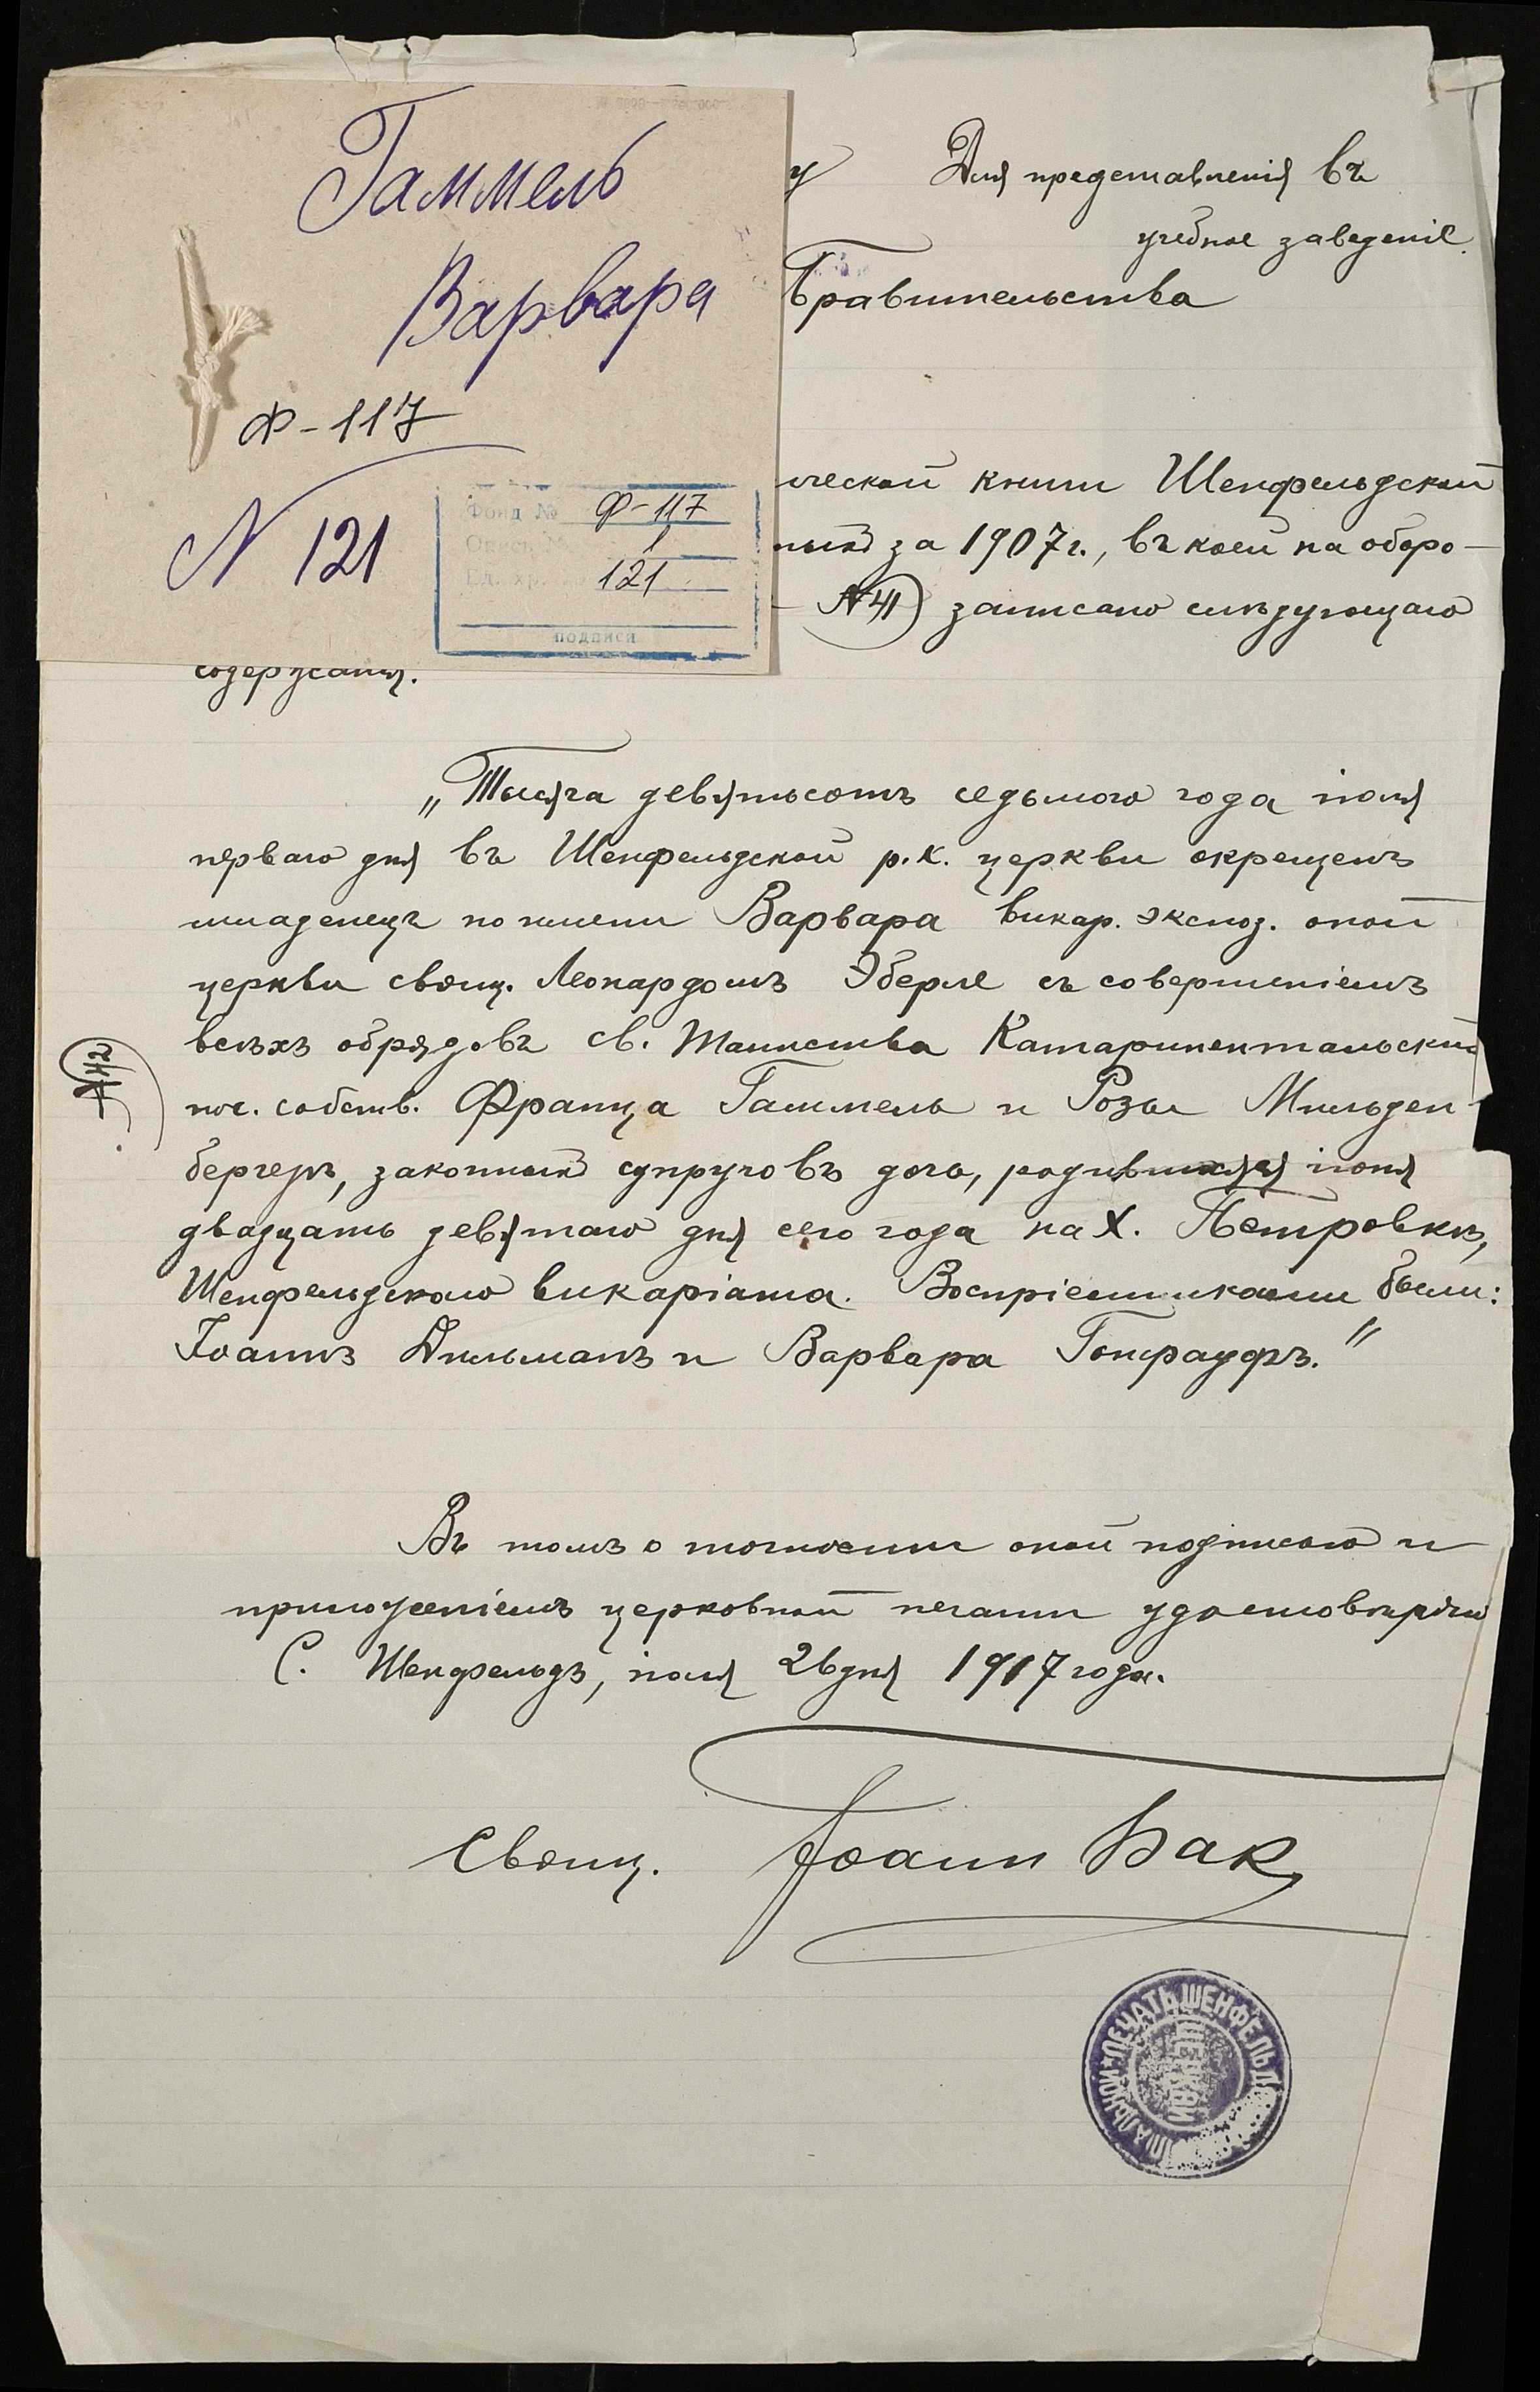 Гаммель
Варвара
Ф-117
N 121
Фонд № Ф-117
1
121
подписи
у Для представленія въ
учебное заведеніе.
Правительства
ической книги Шенфельдской
за 1907 г., въ коей на оборо-
№ 41) записано слѣдующаго
содержанія.
„Тысяча девятьсотъ седьмого года іюля
перваго дня въ Шенфельдской р. к. церкви окрещенъ
младенецъ по имени Варвара викар. экспоз. оной
церкви свящ. Леонардомъ Эберле съ совершеніемъ
всѣхъ обрядовъ св. Таинства Катаринентальскій
№ 42
пос. собств. Франца Гаммель и Розы Мильден-
бергеръ, законныхъ супруговъ дочь, родившаяся іюня
двадцать девятаго дня сего года на х. Петровкѣ,
Шенфельдскаго викаріата. Воспріемниками были:
Іоаннъ Дильманъ и Варвара Гопфауфъ."
Въ томъ о точности оной подписью и
приложеніемъ церковной печати удостовѣряю
С. Шенфельдъ, іюля 26 дня 1917 года.
Свящ. Іоанн Бак
ПЕЧАТЬ ШЕНФЕЛЬД
ЦЕРКВИ